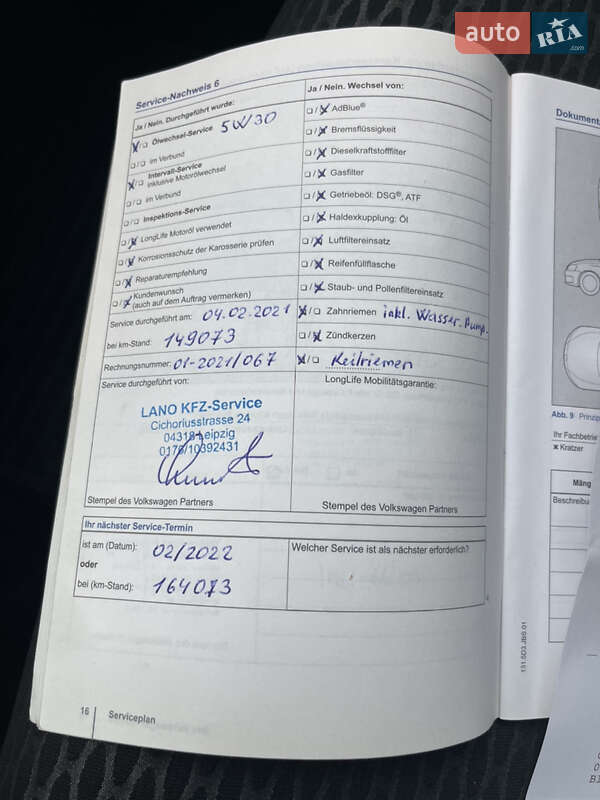 auto RIA.com
Service-Nachweis 6
Ja / Nein. Durchgeführt wurde:
Ölwechsel-Service 5W30
im Verbund
Intervall-Service
inklusive Motorölwechsel
im Verbund
Inspektions-Service
LongLife Motoröl verwendet
Korrosionsschutz der Karosserie prüfen
Reparaturempfehlung
Kundenwunsch
(auch auf dem Auftrag vermerken)
Service durchgeführt am: 04.02.2021
bei km-Stand: 149073
Rechnungsnummer: 01-2021/067
Service durchgeführt von:
LANO KFZ-Service
Cichoriusstrasse 24
04318 Leipzig
0178/10392431
Stempel des Volkswagen Partners
Ja / Nein. Wechsel von:
AdBlue®
Bremsflüssigkeit
Dieselkraftstofffilter
Gasfilter
Getriebeöl: DSG®, ATF
Haldexkupplung: Öl
Luftfiltereinsatz
Reifenfüllflasche
Staub- und Pollenfiltereinsatz
Zahnriemen inkl. Wasser.Pump.
Zündkerzen
Keilriemen
LongLife Mobilitätsgarantie:
Stempel des Volkswagen Partners
Ihr nächster Service-Termin
ist am (Datum): 02/2022
oder
bei (km-Stand): 164073
Welcher Service ist als nächster erforderlich?
16 Serviceplan
Dokument
Abb. 9 Prinzip
Ihr Fachbetrie
x Kratzer
Mäng
Beschreibu
131.5D3.JBB.01